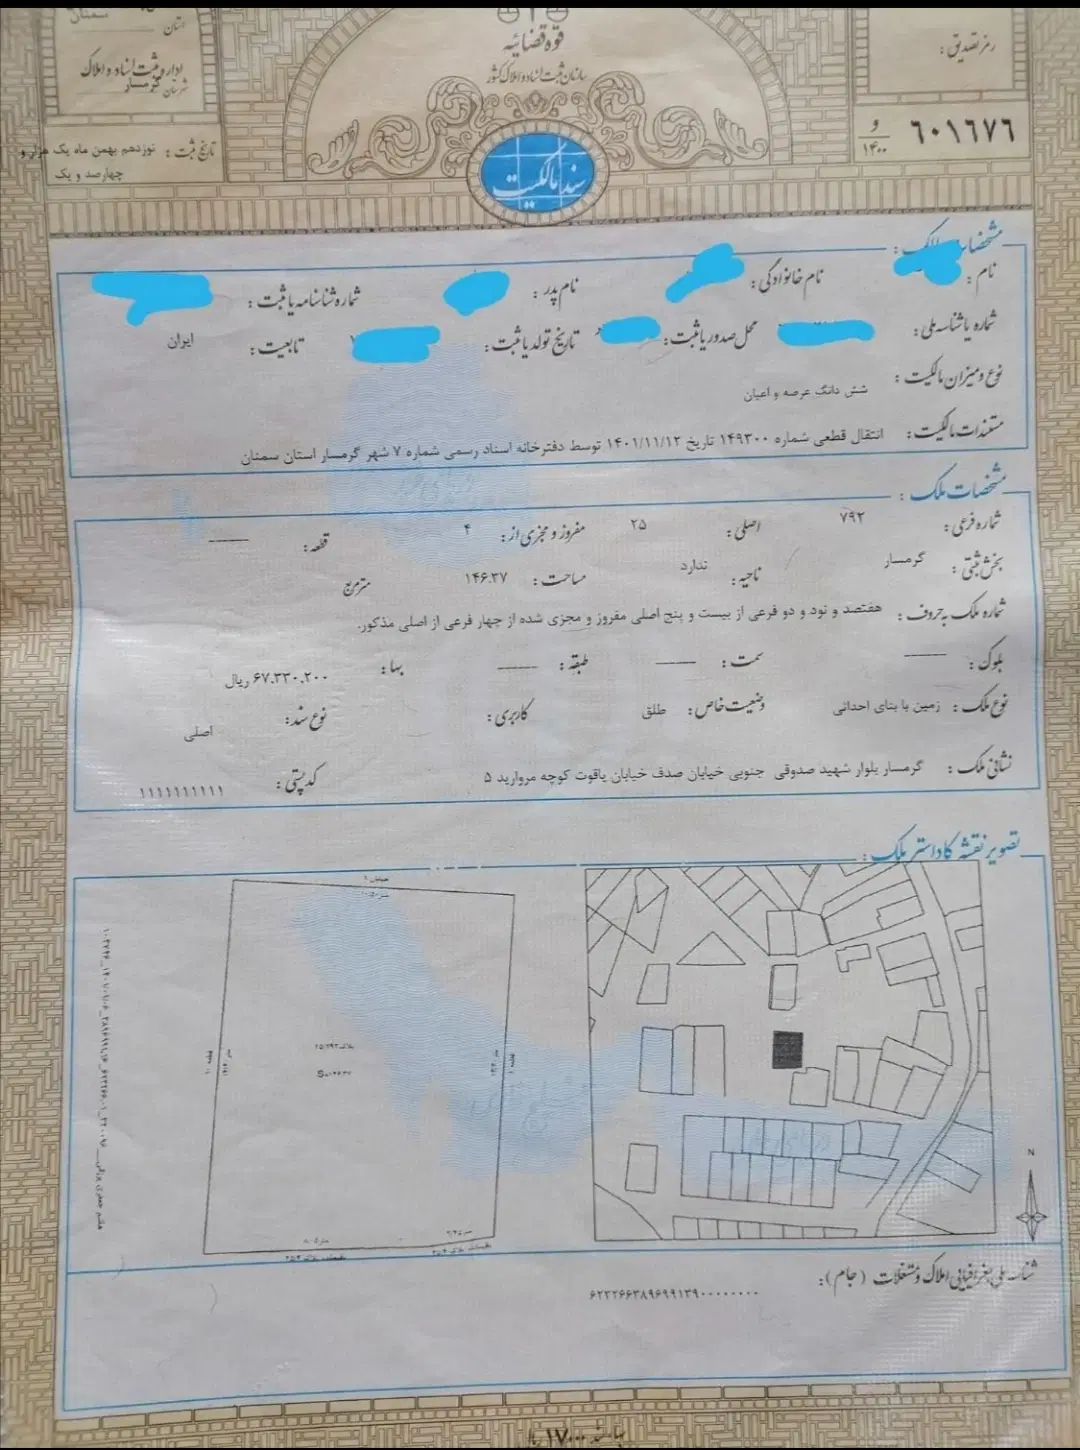 قوه قضائیه
سازمان ثبت اسناد و املاک کشور
استان سمنان
اداره ثبت اسناد و املاک
شهرستان گرمسار
رمز تصدیق :
۶۰۱۶۷۶ و ۱۴۰۰
تاریخ ثبت : نوزدهم بهمن ماه یک هزار و
چهارصد و یک
سند مالکیت
مشخصات مالک :
نام : نام خانوادگی : نام پدر : شماره شناسنامه یا ثبت :
شماره یا شناسه ملی : محل صدور یا ثبت : تاریخ تولد یا ثبت : تابعیت : ایران
نوع و میزان مالکیت : شش دانگ عرصه و اعیان
مستندات مالکیت : انتقال قطعی شماره ۱۴۹۳۰۰ تاریخ ۱۴۰۱/۱۱/۱۲ توسط دفترخانه اسناد رسمی شماره ۷ شهر گرمسار استان سمنان
مشخصات ملک :
شماره فرعی : ۷۹۲ اصلی : ۲۵ مفروز و مجزی از : ۴ قطعه :
بخش ثبتی : گرمسار ناحیه : ندارد مساحت : ۱۴۶.۳۷ مترمربع
شماره ملک به حروف : هفتصد و نود و دو فرعی از بیست و پنج اصلی مفروز و مجزی شده از چهار فرعی از اصلی مذکور.
بلوک : سمت : طبقه : بها : ۶۷.۳۳۰.۲۰۰ ریال
نوع ملک : زمین با بنای احداثی وضعیت خاص : طلق کاربری : نوع سند : اصلی
نشانی ملک : گرمسار بلوار شهید صدوقی جنوبی خیابان صدف خیابان یاقوت کوچه مروارید ۵ کد پستی : ۱۱۱۱۱۱۱۱۱۱
تصویر نقشه کاداستر ملک :
N
شناسه ملی جغرافیایی املاک و مستغلات (جام) :
۶۲۳۲۶۶۳۸۹۶۹۹۱۳۹۰۰۰۰۰۰۰۰۰
بهاء سند ۱۷۰۰۰ ریال